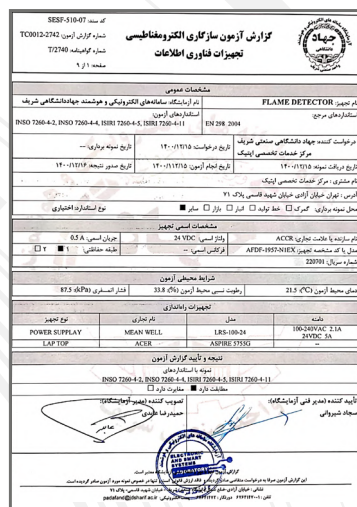 کد سند: SESF-510-07
شماره گزارش آزمون: TC0012-2742
شماره گواهینامه: T/2740
صفحه: ۱ از ۹
گزارش آزمون سازگاری الکترومغناطیسی
تجهیزات فناوری اطلاعات
جهاد
دانشگاهی
مشخصات عمومی
نام تجهیز: FLAME DETECTOR
نام آزمایشگاه: سامانه‌های الکترونیکی و هوشمند جهاددانشگاهی شریف
استانداردهای مرجع:
EN 298: 2004
استانداردهای آزمون:
INSO 7260-4-2, INSO 7260-4-4, ISIRI 7260-4-5, ISIRI 7260-4-11
درخواست کننده: جهاد دانشگاهی صنعتی شریف
مرکز خدمات تخصصی اپتیک
تاریخ درخواست: ۱۴۰۰/۱۲/۱۵
تاریخ نمونه برداری: ---
تاریخ دریافت نمونه: ۱۴۰۰/۱۲/۱۵
تاریخ انجام آزمون: ۱۴۰۰/۱۲/۱۵
تاریخ صدور نتیجه: ۱۴۰۰/۱۲/۱۶
نام مشتری: مرکز خدمات تخصصی اپتیک
آدرس: تهران خیابان آزادی خیابان شهید قاسمی پلاک ۷۱
محل نمونه برداری: گمرک □ خط تولید □ انبار □ بازار □ سایر ■
نوع استاندارد: اختیاری
مشخصات اسمی تجهیز
نام سازنده یا علامت تجاری: ACCR
ولتاژ اسمی: 24 VDC
جریان اسمی: 0.5 A
مدل یا کد مشخصه تجهیز: AFDF-1957-N1EX
فرکانس اسمی: --
طبقه حفاظتی: ۱ ■ ۲ □
شماره سریال: 220701
شرایط محیطی آزمون
دمای محیط آزمون (°C): 21.5
رطوبت نسبی محیط آزمون (%): 33.8
فشار اتمسفری (kPa): 87.5
تجهیزات راه‌اندازی
نوع تجهیز
نام تجاری
مدل
دامنه
POWER SUPPLAY
MEAN WELL
LRS-100-24
100-240VAC 2.1A
24VDC 5A
LAP TOP
ACER
ASPIRE 5755G
--
نتیجه و تأیید گزارش آزمون
نمونه با استانداردهای
INSO 7260-4-2, INSO 7260-4-4, ISIRI 7260-4-5, ISIRI 7260-4-11
مطابقت دارد ■ مغایرت دارد □
تأیید کننده (مدیر فنی آزمایشگاه):
سجاد شیروانی
تصویب کننده (مدیر آزمایشگاه):
حمیدرضا عابدی
ELECTRONIC
AND SMART
SYSTEMS